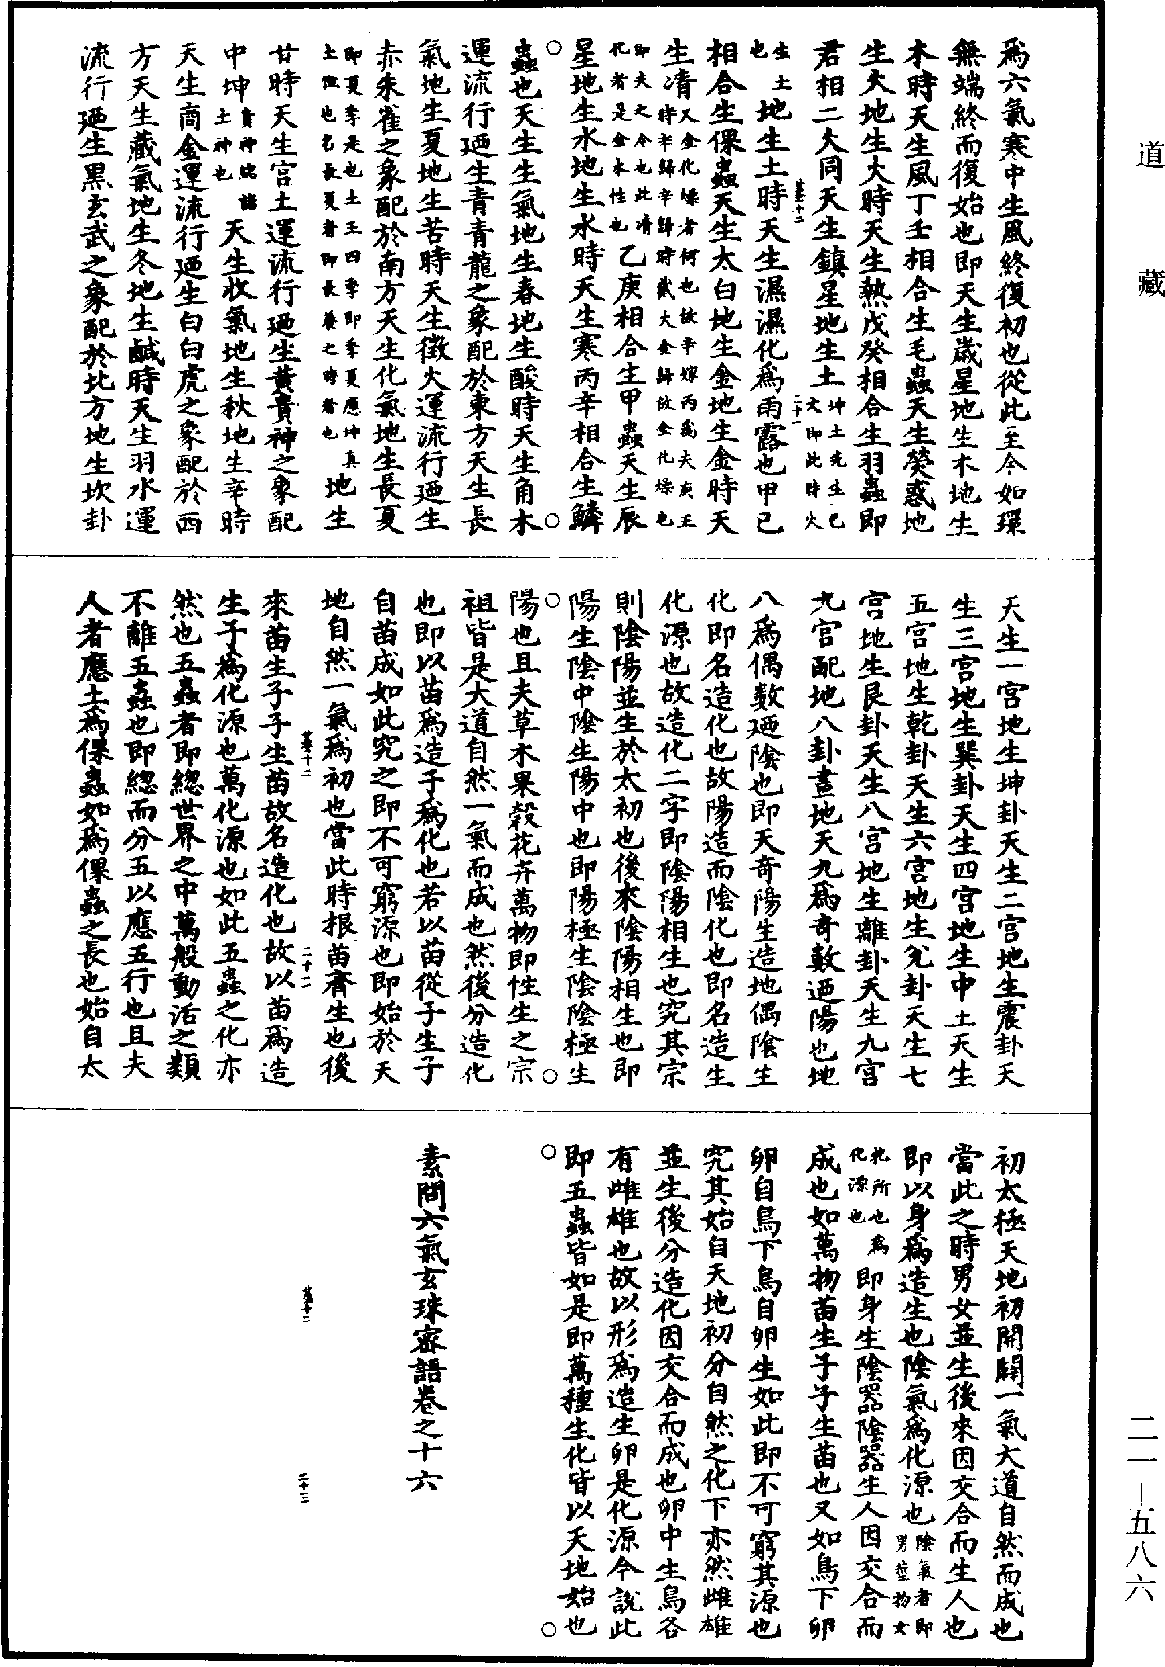 道藏
二一—五八六
爲六氣寒中生風終復初也從此至今如環
無端終而復始也即天生歲星地生木地生
木時天生風丁壬相合生毛蟲天生熒惑地
生火地生火時天生熱戊癸相合生羽蟲即
君相二火同天生鎮星地生土坤土先生已文即此時火
生土也地生土時天生濕濕化爲雨露也甲己
相合生倮蟲天生太白地生金地生金時天
生凊
即夫之令也此凊化者是金本性也乙庚相合生甲蟲天生辰
星地生水地生水時天生寒丙辛相合生鱗
蟲也天生生氣地生春地生酸時天生角木
運流行廼生青青龍之象配於東方天生長
氣地生夏地生苦時天生徵火運流行廼生
赤朱雀之象配於南方天生化氣地生長夏
即夏季是也土王四季即季夏應坤真土位也名長夏者即長養之時者也地生
甘時天生宮土運流行廼生黃黃神之象配
中坤土神也天生收氣地生秋地生辛時
天生商金運流行廼生白白虎之象配於西
方天生藏氣地生冬地生鹹時天生羽水運
流行廼生黑玄武之象配於北方地生坎卦
天生一宮地生坤卦天生二宮地生震卦天
生三宮地生巽卦天生四宮地生中土天生
五宮地生乾卦天生六宮地生兌卦天生七
宮地生艮卦天生八宮地生離卦天生九宮
九宮配地八卦畫地天九爲奇數廼陽也地
八爲偶數廼陰也即天奇陽生造地偶陰生
化即名造化也故陽造而陰化也即名造生
化源也故造化二字即陰陽相生也究其宗
則陰陽並生於太初也後來陰陽相生也即
陽生陰中陰生陽中也即陽極生陰陰極生
陽也且夫草木果穀花卉萬物即性生之宗
祖皆是大道自然一氣而成也然後分造化
也即以苗爲造子爲化也若以苗從子生子
自苗成如此究之即不可窮源也即始於天
地自然一氣爲初也當此時根苗齊生也後
來苗生子子生苗故名造化也故以苗爲造
生子爲化源也萬化源也如此五蟲之化亦
然也五蟲者即總世界之中萬般動活之類
不離五蟲也即總而分五以應五行也且夫
人者應土爲倮蟲如爲倮蟲之長也始自太
初太極天地初開闢一氣大道自然而成也
當此之時男女並生後來因交合而生人也
即以身爲造生也陰氣爲化源也陰氣者即男莖物女
牝所也爲化源也即身生陰器陰器生人因交合而
成也如萬物苗生子子生苗也又如鳥下卵
卵自鳥下鳥自卵生如此即不可窮其源也
究其始自天地初分自然之化下亦然雌雄
並生後分造化因交合而成也卵中生鳥各
有雌雄也故以形爲造生卵是化源今說此
即五蟲皆如是即萬種生化皆以天地始也
素問六氣玄珠密語卷之十六